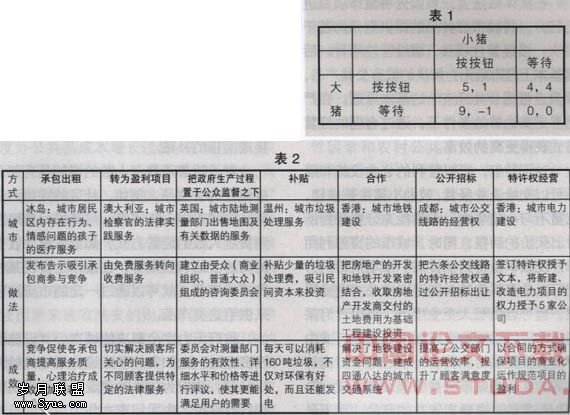 表 1
小猪
按按钮 等待
大猪 按按钮 5, 1 4, 4
等待 9, -1 0, 0
表 2
方式 承包出租 转为盈利项目 把政府生产过程置于公众监督之下 补贴 合作 公开招标 特许权经营
城市 冰岛：城市居民区内存在行为、情感问题的孩子的医疗服务 澳大利亚：城市检察官的法律实践服务 英国：城市陆地测量部门出售地图及有关数据的服务 温州：城市垃圾处理服务 香港：城市地铁建设 成都：城市公交线路的经营权 香港：城市电力建设
做法 发布告示吸引承包商参与竞争 由免费服务转向收费服务 建立由受众（商业组织、普通大众）组成的咨询委员会 补贴少量的垃圾处理费，吸引民间资本来投资 把房地产的开发和地铁开发紧密结合，收取房地产开发商交付的土地费用为基础工程建设投资 把六条公交线路的特许经营权通过公开招标出让 签订特许权授予文本，将新建、改造电力项目的权力授予5家公司
成效 竞争促使各承包商提高服务质量，心理治疗成 切实解决顾客所关心的问题，为不同顾客提供特定的法律服务 委员会对测量部门服务的有效性、详细水平和价格等进行评议，使其更能满足用户的需要 每天可以消耗160吨垃圾，不仅对环保有好处，而且还能发电 解决了地铁建设资金问题，建成四通八达的城市交通系统 提高了公交公司的运营效率，提升了顾客满意度 以合同的方式确保项目的商业化运作规范项目的盈利
岁月联盟
www.Syue.com
中国论文下载
WWW.STUDA.